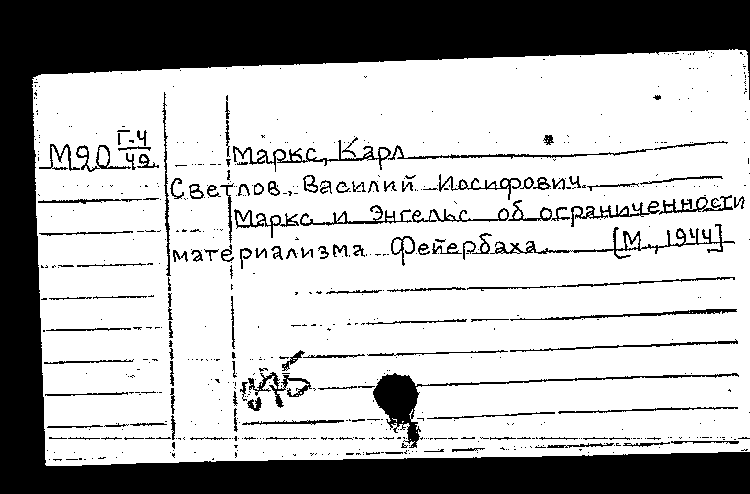 М90 Г-4/49 Маркс, Карл
Светлов, Василий Иосифович.
Маркс и Энгельс об ограниченности
материализма Фейербаха. [М., 1944]